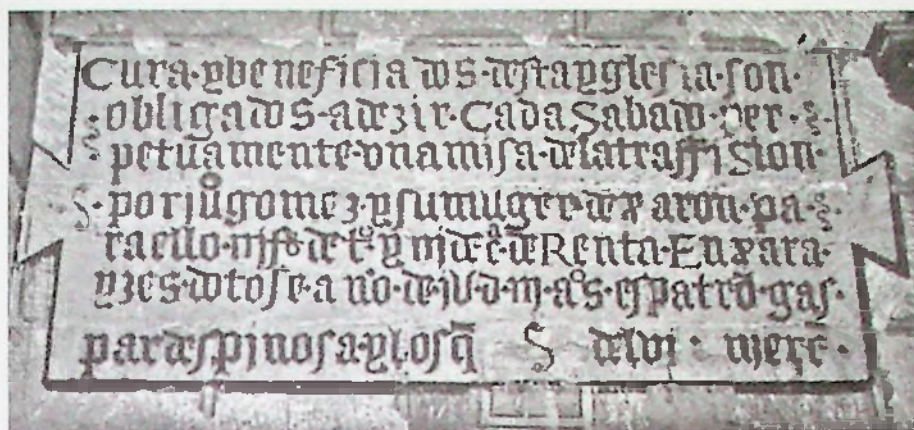 Cura·ybeneficiados·destayglesia·son·
obligados·adezir·Cada·Sabado·per·
petuamente·vnamisa·delatraffision·
porjũgomez·ysumuger·dexaron·pa·
raello· deRenta·Enxara·
yzes·dotose·año·de espatrõ·gas·
pardespinosa·ylosq̃ S delvi·njerē·